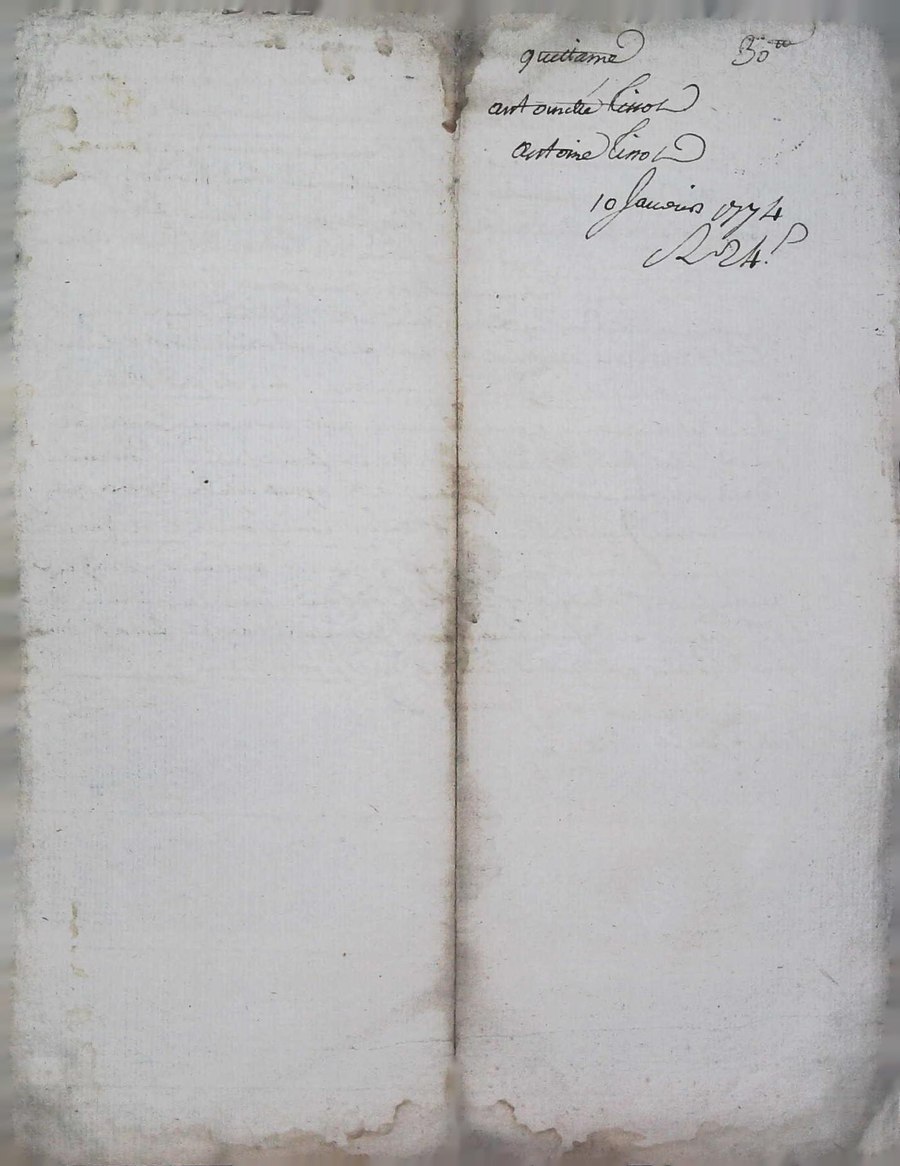 quittance 30tt
antoinete tissot
antoine tissot
10 Janvier 1774
R. 24.s